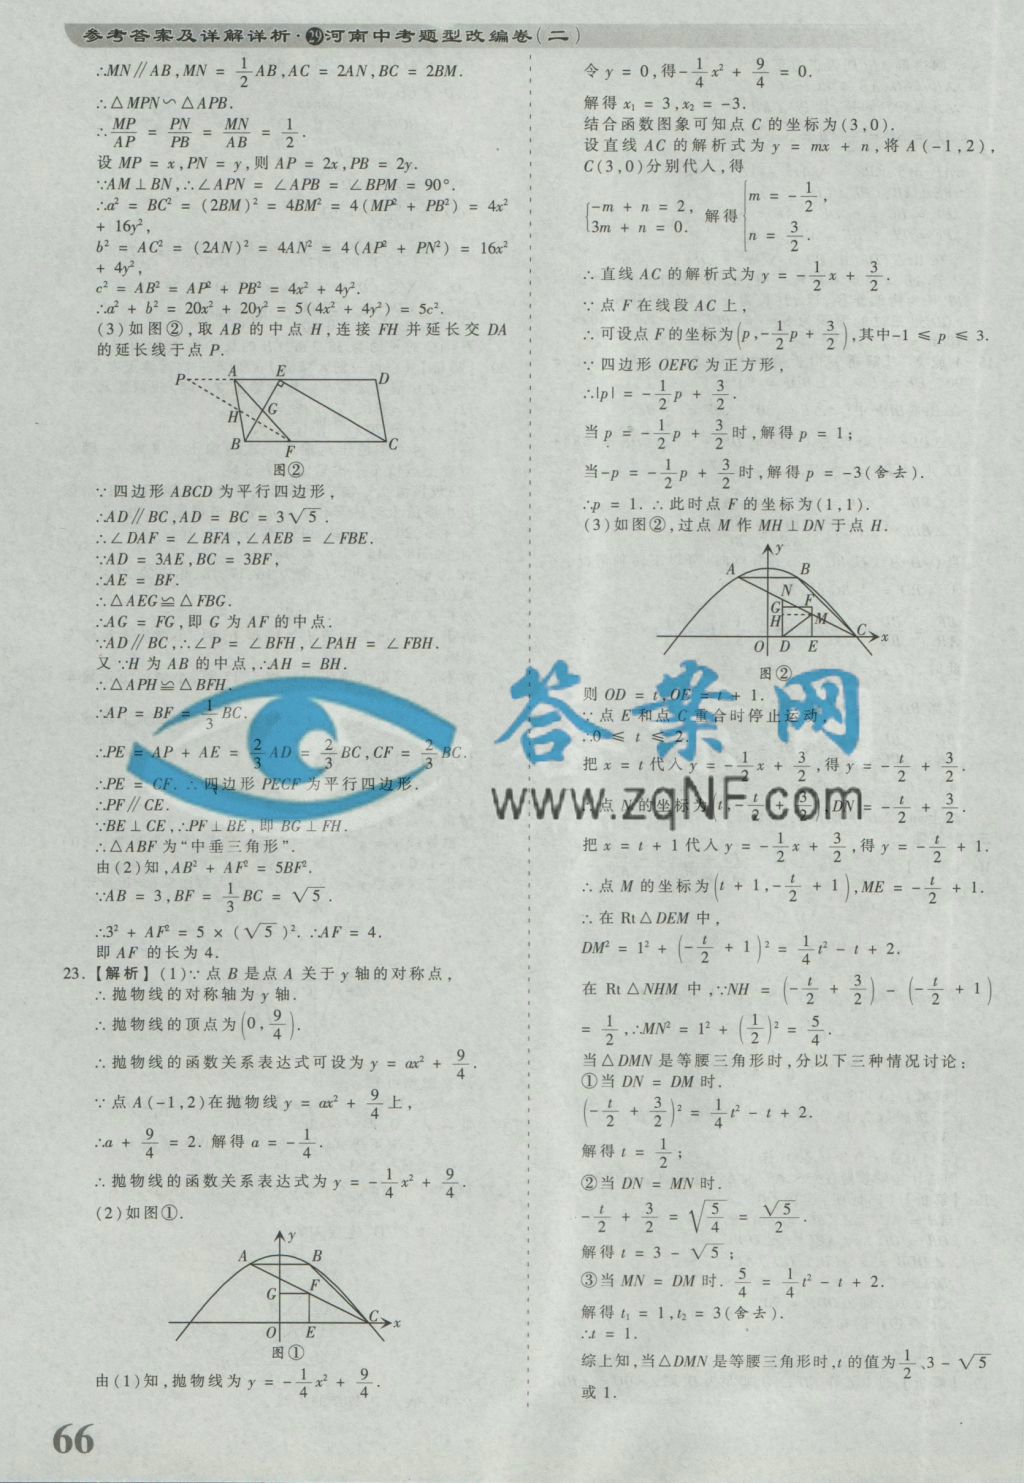 参考答案及详解详析·㉙河南中考题型改编卷(二)
∴MN∥AB,MN = 1/2 AB,AC = 2AN,BC = 2BM.
∴△MPN∽△APB.
∴MP/AP = PN/PB = MN/AB = 1/2.
设 MP = x,PN = y,则 AP = 2x,PB = 2y.
∵AM⊥BN,∴∠APN = ∠APB = ∠BPM = 90°.
∴a² = BC² = (2BM)² = 4BM² = 4(MP² + PB²) = 4x²
+ 16y²,
b² = AC² = (2AN)² = 4AN² = 4(AP² + PN²) = 16x²
+ 4y²,
c² = AB² = AP² + PB² = 4x² + 4y².
∴a² + b² = 20x² + 20y² = 5(4x² + 4y²) = 5c².
(3)如图②,取 AB 的中点 H,连接 FH 并延长交 DA
的延长线于点 P.
P A E D
H G
B F C
图②
∵四边形 ABCD 为平行四边形,
∴AD∥BC,AD = BC = 3√5.
∴∠DAF = ∠BFA,∠AEB = ∠FBE.
∵AD = 3AE,BC = 3BF,
∴AE = BF.
∴△AEG≌△FBG.
∴AG = FG,即 G 为 AF 的中点.
∵AD∥BC,∴∠P = ∠BFH,∠PAH = ∠FBH.
又∵H 为 AB 的中点,∴AH = BH.
∴△APH≌△BFH.
∴AP = BF = 1/3 BC.
∴PE = AP + AE = 2/3 AD = 2/3 BC,CF = 2/3 BC.
∴PE = CF. ∴四边形 PECF 为平行四边形.
∴PF∥CE.
∵BE⊥CE,∴PF⊥BE,即 BG⊥FH.
∴△ABF 为“中垂三角形”.
由(2)知,AB² + AF² = 5BF².
∵AB = 3,BF = 1/3 BC = √5.
∴3² + AF² = 5 × (√5)². ∴AF = 4.
即 AF 的长为 4.
23.【解析】(1)∵点 B 是点 A 关于 y 轴的对称点,
∴抛物线的对称轴为 y 轴.
∴抛物线的顶点为(0, 9/4).
∴抛物线的函数关系表达式可设为 y = ax² + 9/4.
∵点 A(-1,2)在抛物线 y = ax² + 9/4 上,
∴a + 9/4 = 2. 解得 a = -1/4.
∴抛物线的函数关系表达式为 y = -1/4 x² + 9/4.
(2)如图①.
y
A B
G F
O E C x
图①
由(1)知,抛物线为 y = -1/4 x² + 9/4.
66
令 y = 0,得-1/4 x² + 9/4 = 0.
解得 x₁ = 3,x₂ = -3.
结合函数图象可知点 C 的坐标为(3,0).
设直线 AC 的解析式为 y = mx + n,将 A(-1,2),
C(3,0)分别代人,得
{-m + n = 2, 3m + n = 0. 解得{m = -1/2, n = 3/2.
∴直线 AC 的解析式为 y = -1/2 x + 3/2.
∵点 F 在线段 AC 上,
∴可设点 F 的坐标为(p,-1/2 p + 3/2),其中-1 ≤ p ≤ 3.
∵四边形 OEFG 为正方形,
∴|p| = -1/2 p + 3/2.
当 p = -1/2 p + 3/2时,解得 p = 1;
当-p = -1/2 p + 3/2时,解得 p = -3(舍去).
∴p = 1. ∴此时点 F 的坐标为(1,1).
(3)如图②,过点 M 作 MH⊥DN 于点 H.
y
A B
N
G F
H M
O D E C x
图②
则 OD = t,OE = t + 1.
∵点 E 和点 C 重合时停止运动,
∴0 ≤ t ≤ 2.
把 x = t 代人 y = -1/2 x + 3/2,得 y = -t/2 + 3/2.
∴点 N 的坐标为(t,-t/2 + 3/2),DN = -t/2 + 3/2.
把 x = t + 1 代人 y = -1/2 x + 3/2,得 y = -t/2 + 1.
∴点 M 的坐标为(t + 1,-t/2 + 1),ME = -t/2 + 1.
∴在 Rt△DEM 中,
DM² = 1² + (-t/2 + 1)² = 1/4 t² - t + 2.
在 Rt△NHM 中,∵NH = (-t/2 + 3/2) - (-t/2 + 1)
= 1/2,∴MN² = 1² + (1/2)² = 5/4.
当△DMN 是等腰三角形时,分以下三种情况讨论:
①当 DN = DM 时.
(-t/2 + 3/2)² = 1/4 t² - t + 2.
解得 t = 1/2;
②当 DN = MN 时.
-t/2 + 3/2 = √(5/4) = √5/2.
解得 t = 3 - √5;
③当 MN = DM 时. 5/4 = 1/4 t² - t + 2.
解得 t₁ = 1,t₂ = 3(舍去).
∴t = 1.
综上知,当△DMN 是等腰三角形时,t 的值为 1/2、3 - √5
或 1.
答案网
www.zqNF.com